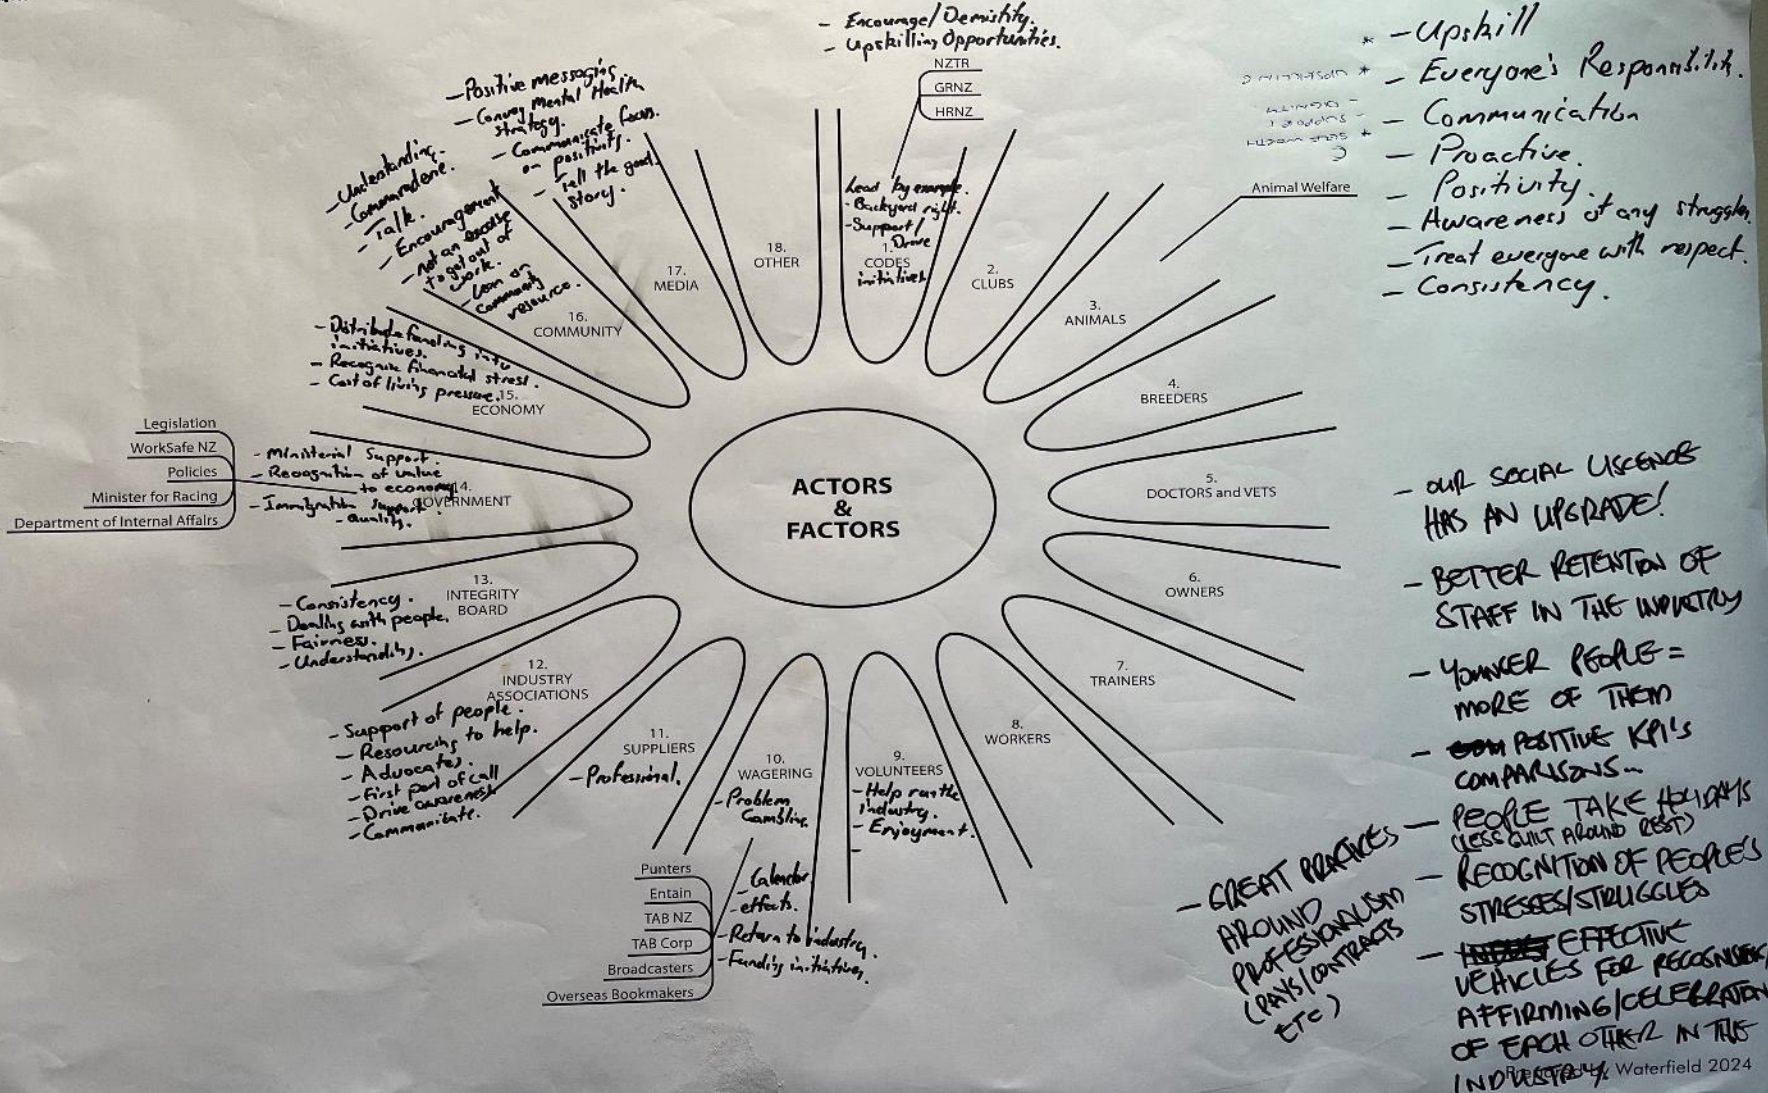 - Encourage/Demistify.
- Upskilling Opportunities.
NZTR
GRNZ
HRNZ
Lead by example.
- Backyard right.
- Support/
Drive
1.
CODES
initiatives
2.
CLUBS
Animal Welfare
3.
ANIMALS
4.
BREEDERS
5.
DOCTORS and VETS
6.
OWNERS
7.
TRAINERS
8.
WORKERS
9.
VOLUNTEERS
- Help run the
industry.
- Enjoyment.
-
10.
WAGERING
- Problem
Gambling.
- Calendar
effects.
- Return to industry.
- Funding initiatives.
Punters
Entain
TAB NZ
TAB Corp
Broadcasters
Overseas Bookmakers
11.
SUPPLIERS
- Professional.
12.
INDUSTRY
ASSOCIATIONS
- Support of people.
- Resourcing to help.
- Advocates.
- First port of call
- Drive awareness
- Communicate.
13.
INTEGRITY
BOARD
- Consistency.
- Dealing with people.
- Fairness.
- Understanding.
14.
GOVERNMENT
- Ministerial Support.
- Recognition of value
to economy.
- Immigration support.
- Quality.
Legislation
WorkSafe NZ
Policies
Minister for Racing
Department of Internal Affairs
15.
ECONOMY
- Distribute funding into
initiatives.
- Recognise financial stress.
- Cost of living pressure.
16.
COMMUNITY
- Understanding.
- Commaraderie.
- Talk.
- Encouragement
- not an excuse
to get out of
work.
- Lean on
community
resource.
17.
MEDIA
- Positive messaging
- Convey Mental Health
strategy.
- Communicate focus.
on positivity.
- Tell the good
story.
18.
OTHER
ACTORS
&
FACTORS
* - Upskill
- Everyone's Responsibility.
- Communication
- Proactive.
- Positivity.
- Awareness of any struggles.
- Treat everyone with respect.
- Consistency.
* UPSKILLING
- SUPPORT
- OUR SOCIAL LISCENCE
HAS AN UPGRADE!
- BETTER RETENTION OF
STAFF IN THE INDUSTRY
- YOUNGER PEOPLE =
MORE OF THEM
- POSITIVE KPI'S
COMPARISONS...
- PEOPLE TAKE HOLIDAYS
(LESS GUILT AROUND REST)
- RECOGNITION OF PEOPLE'S
STRESSES/STRUGGLES
- EFFECTIVE
VEHICLES FOR
AFFIRMING/CELEBRATION
OF EACH OTHER IN THE
INDUSTRY.
- GREAT PRACTICES
AROUND
PROFESSIONALISM
(PAYS/CONTRACTS
ETC)
by Waterfield 2024